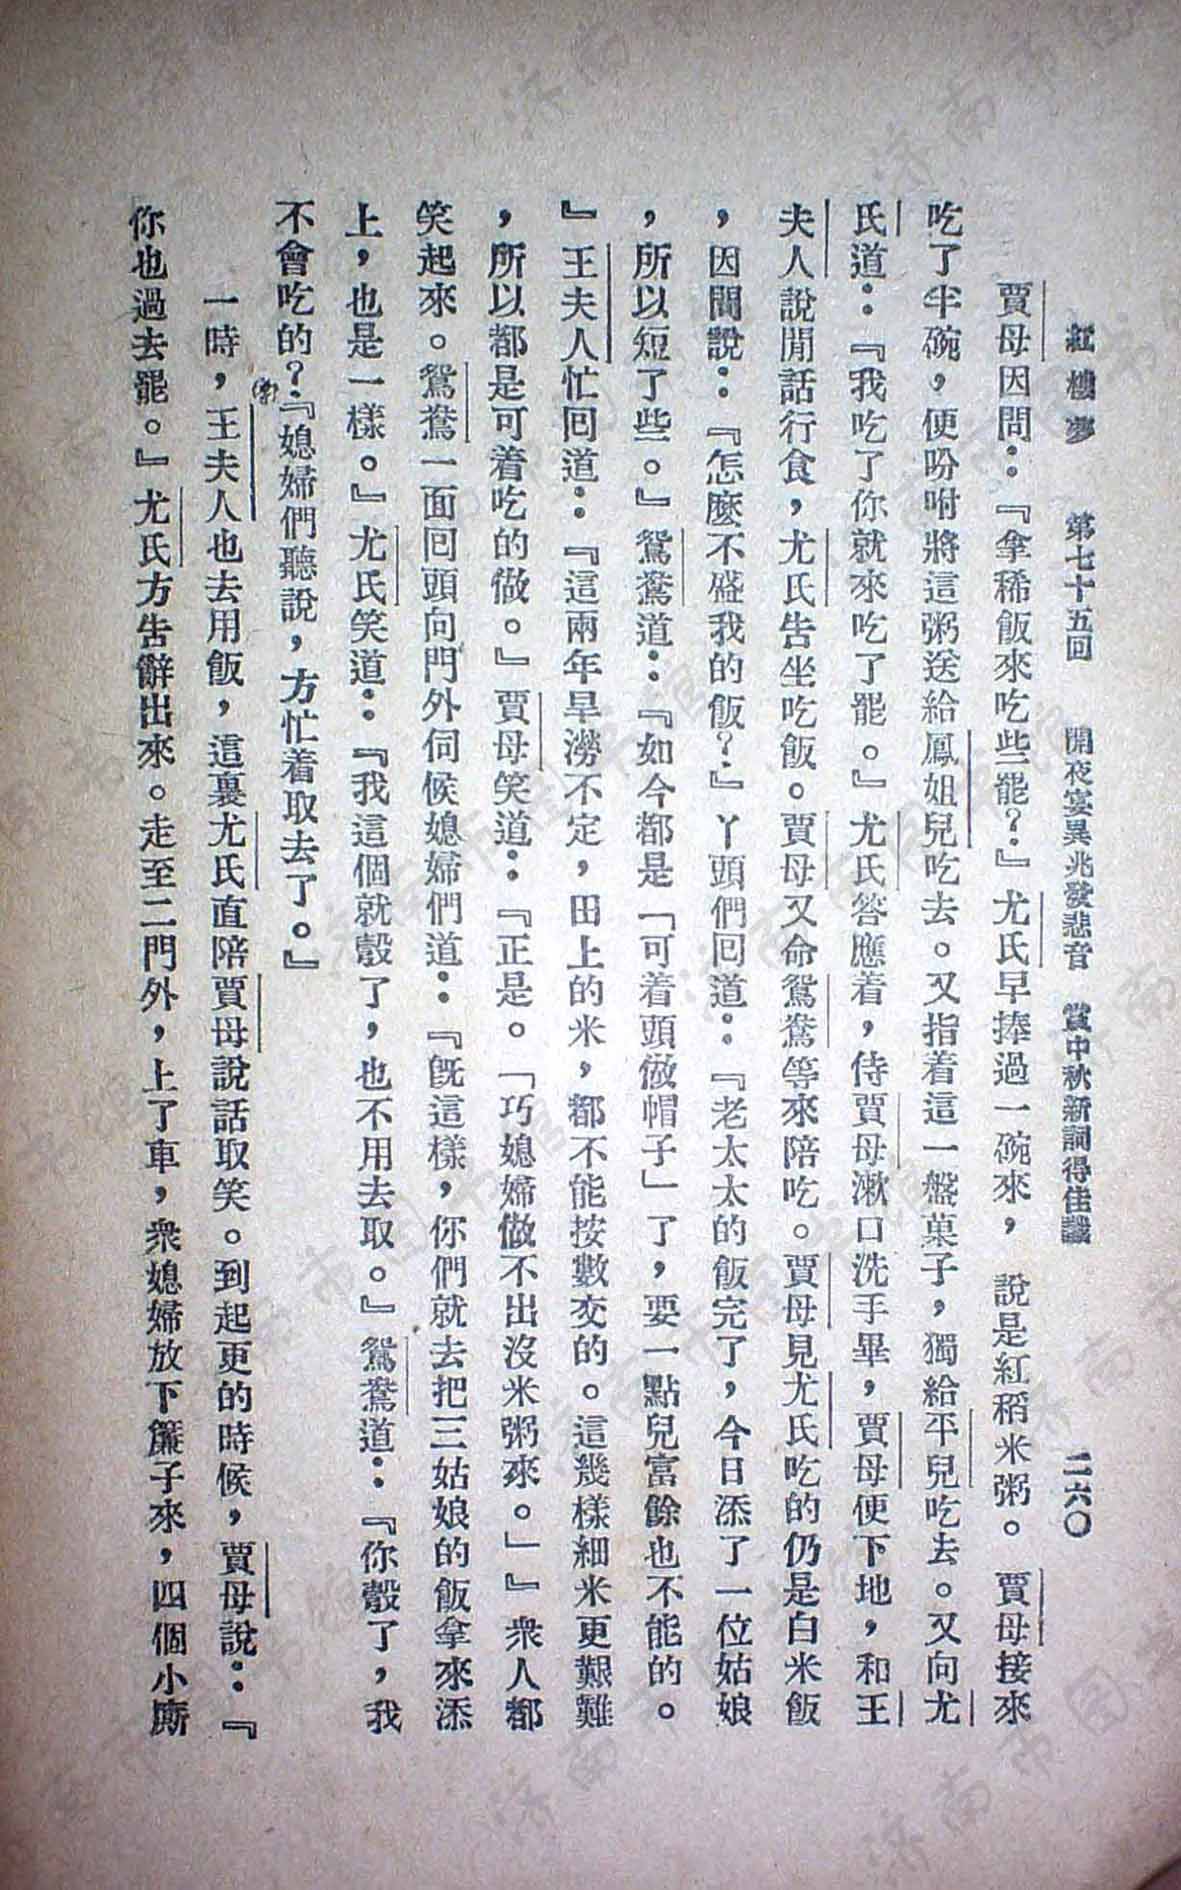 紅樓夢　第七十五回　開夜宴異兆發悲音　賞中秋新詞得佳讖　二六〇
賈母因問：『拿稀飯來吃些罷？』尤氏早捧過一碗來，說是紅稻米粥。賈母接來
吃了半碗，便吩咐將這粥送給鳳姐兒吃去。又指着這一盤菓子，獨給平兒吃去。又向尤
氏道：『我吃了你就來吃了罷。』尤氏答應着，侍賈母漱口洗手畢，賈母便下地，和王
夫人說閒話行食，尤氏告坐吃飯。賈母又命鴛鴦等來陪吃。賈母見尤氏吃的仍是白米飯
，因問說：『怎麼不盛我的飯？』丫頭們回道：『老太太的飯完了，今日添了一位姑娘
，所以短了些。』鴛鴦道：『如今都是「可着頭做帽子」了，要一點兒富餘也不能的。
』王夫人忙回道：『這兩年旱澇不定，田上的米，都不能按數交的。這幾樣細米更艱難
，所以都是可着吃的做。』賈母笑道：『正是。「巧媳婦做不出沒米粥來。」』衆人都
笑起來。鴛鴦一面回頭向門外伺候媳婦們道：『旣這樣，你們就去把三姑娘的飯拿來添
上，也是一樣。』尤氏笑道：『我這個就彀了，也不用去取。』鴛鴦道：『你彀了，我
不會吃的？『媳婦們聽說，方忙着取去了。』
一時，王夫人也去用飯，這裏尤氏直陪賈母說話取笑。到起更的時候，賈母說：『
你也過去罷。』尤氏方告辭出來。走至二門外，上了車，衆媳婦放下簾子來，四個小廝
济南市图书馆